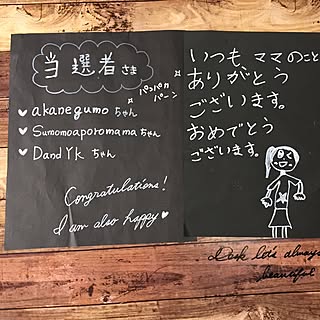 当選者さま
パンパカ
パーン
akanegumoちゃん
Sumomoaporomamaちゃん
DandYkちゃん
Congratulations!
I am also happy
いつもママのこと
ありがとう
ございます。
おめでとう
ございます。
let's always
beautiful